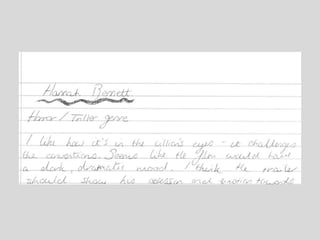 Hannah Bennett
Horror / Triller genre
I like how it's in the villian's eyes - it challenges
the conventions. Seems like the film would have
a dark, dramatic mood. I think the trailer
should show his obsession and emotion towards